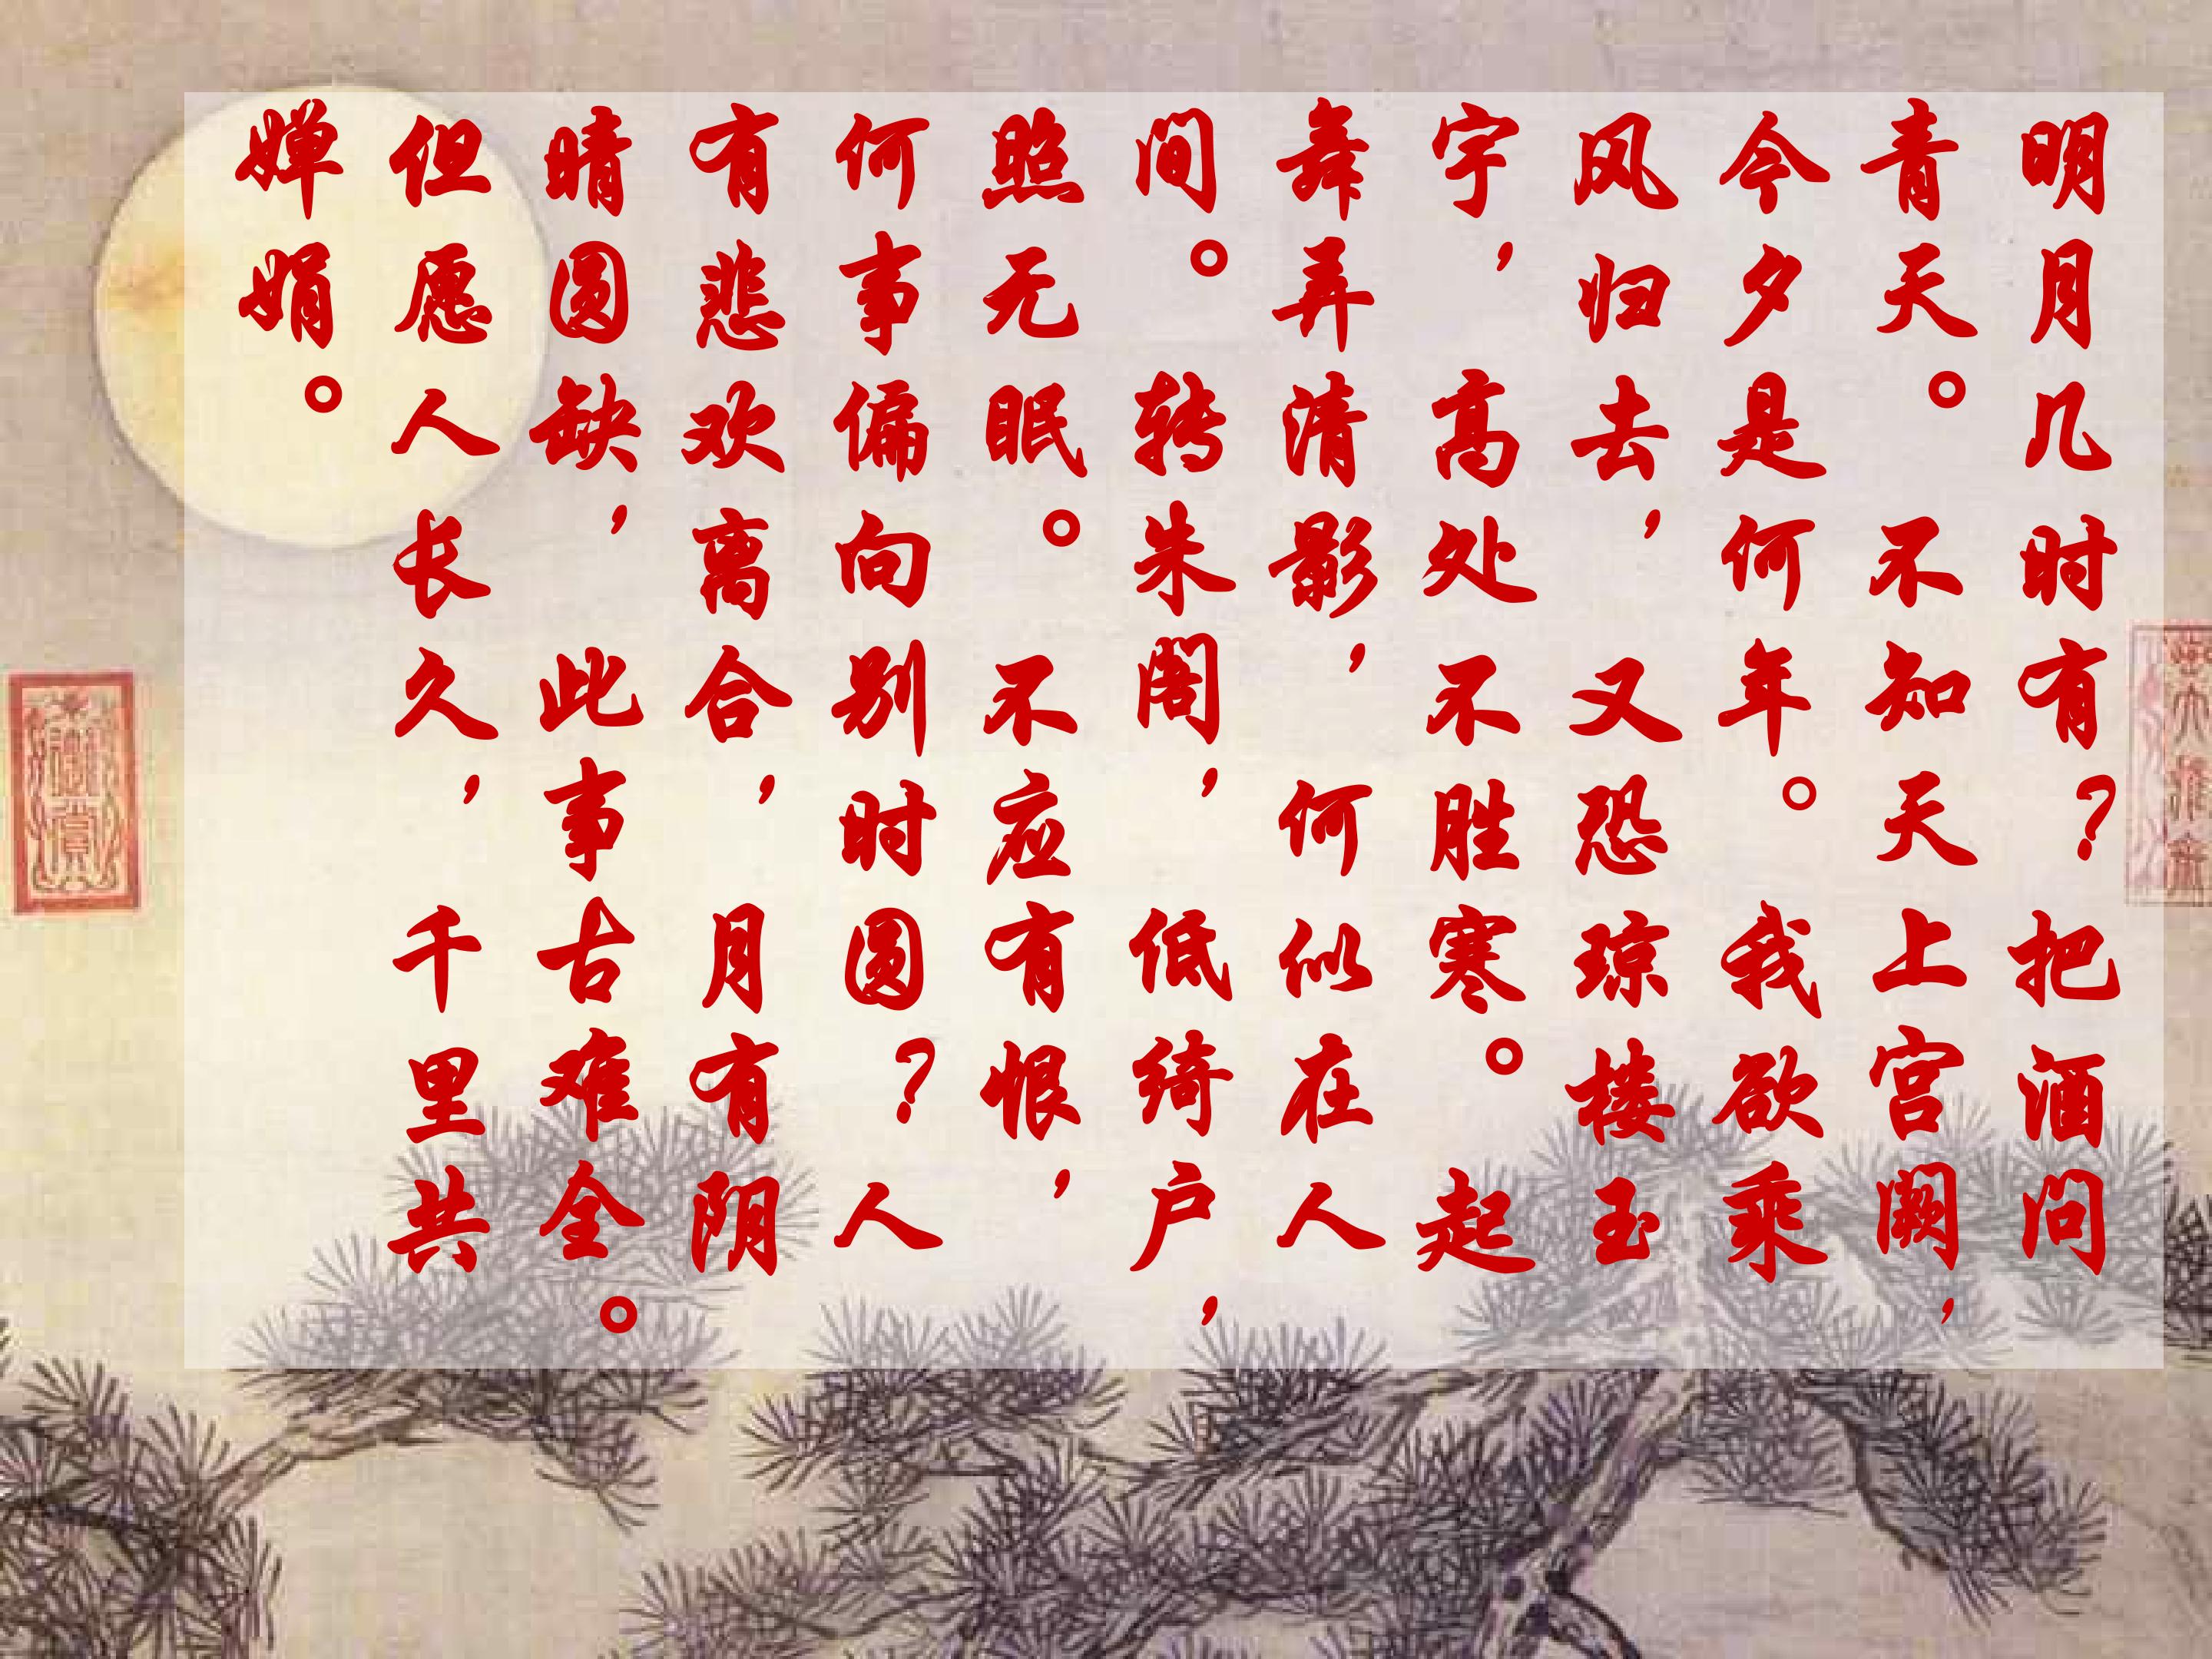 明月几时有?把酒问
青天。不知天上宫阙,
今夕是何年。我欲乘
风归去,又恐琼楼玉
宇,高处不胜寒。起
舞弄清影,何似在人
间。转朱阁,低绮户,
照无眠。不应有恨,
何事偏向别时圆?人
有悲欢离合,月有阴
晴圆缺,此事古难全。
但愿人长久,千里共
婵娟。